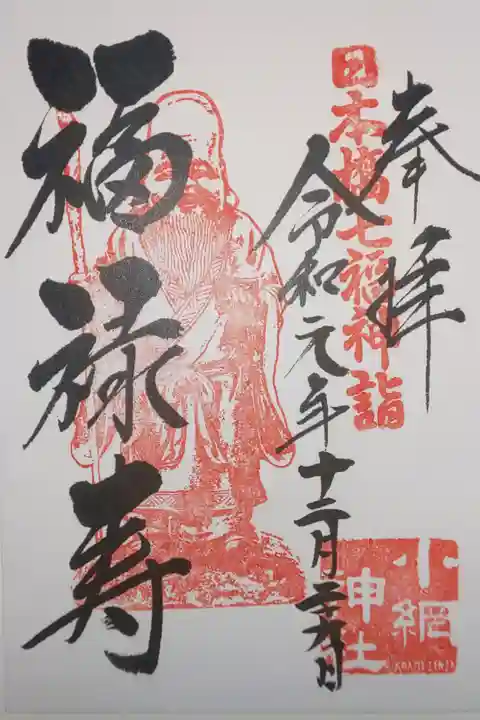 奉拝
日本橋七福神詣
令和元年十二月
福禄寿
小網
神社
KOAMI JINJA